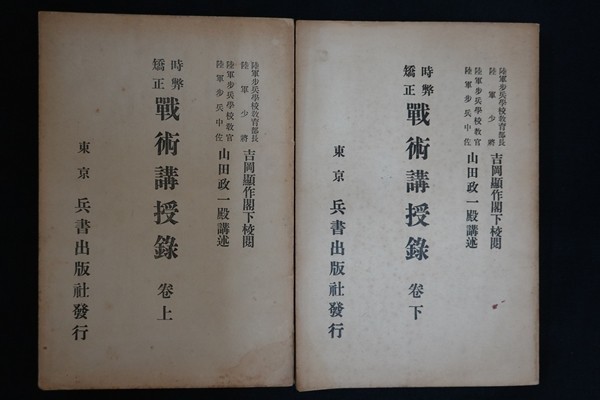 陸軍歩兵學校教育部長
陸軍少將
吉岡顯作閣下校閱
陸軍歩兵學校教官
陸軍歩兵中佐
山田政一殿講述
時弊
矯正
戰術講授錄 卷上
東京 兵書出版社發行
陸軍歩兵學校教育部長
陸軍少將
吉岡顯作閣下校閱
陸軍歩兵學校教官
陸軍歩兵中佐
山田政一殿講述
時弊
矯正
戰術講授錄 卷下
東京 兵書出版社發行